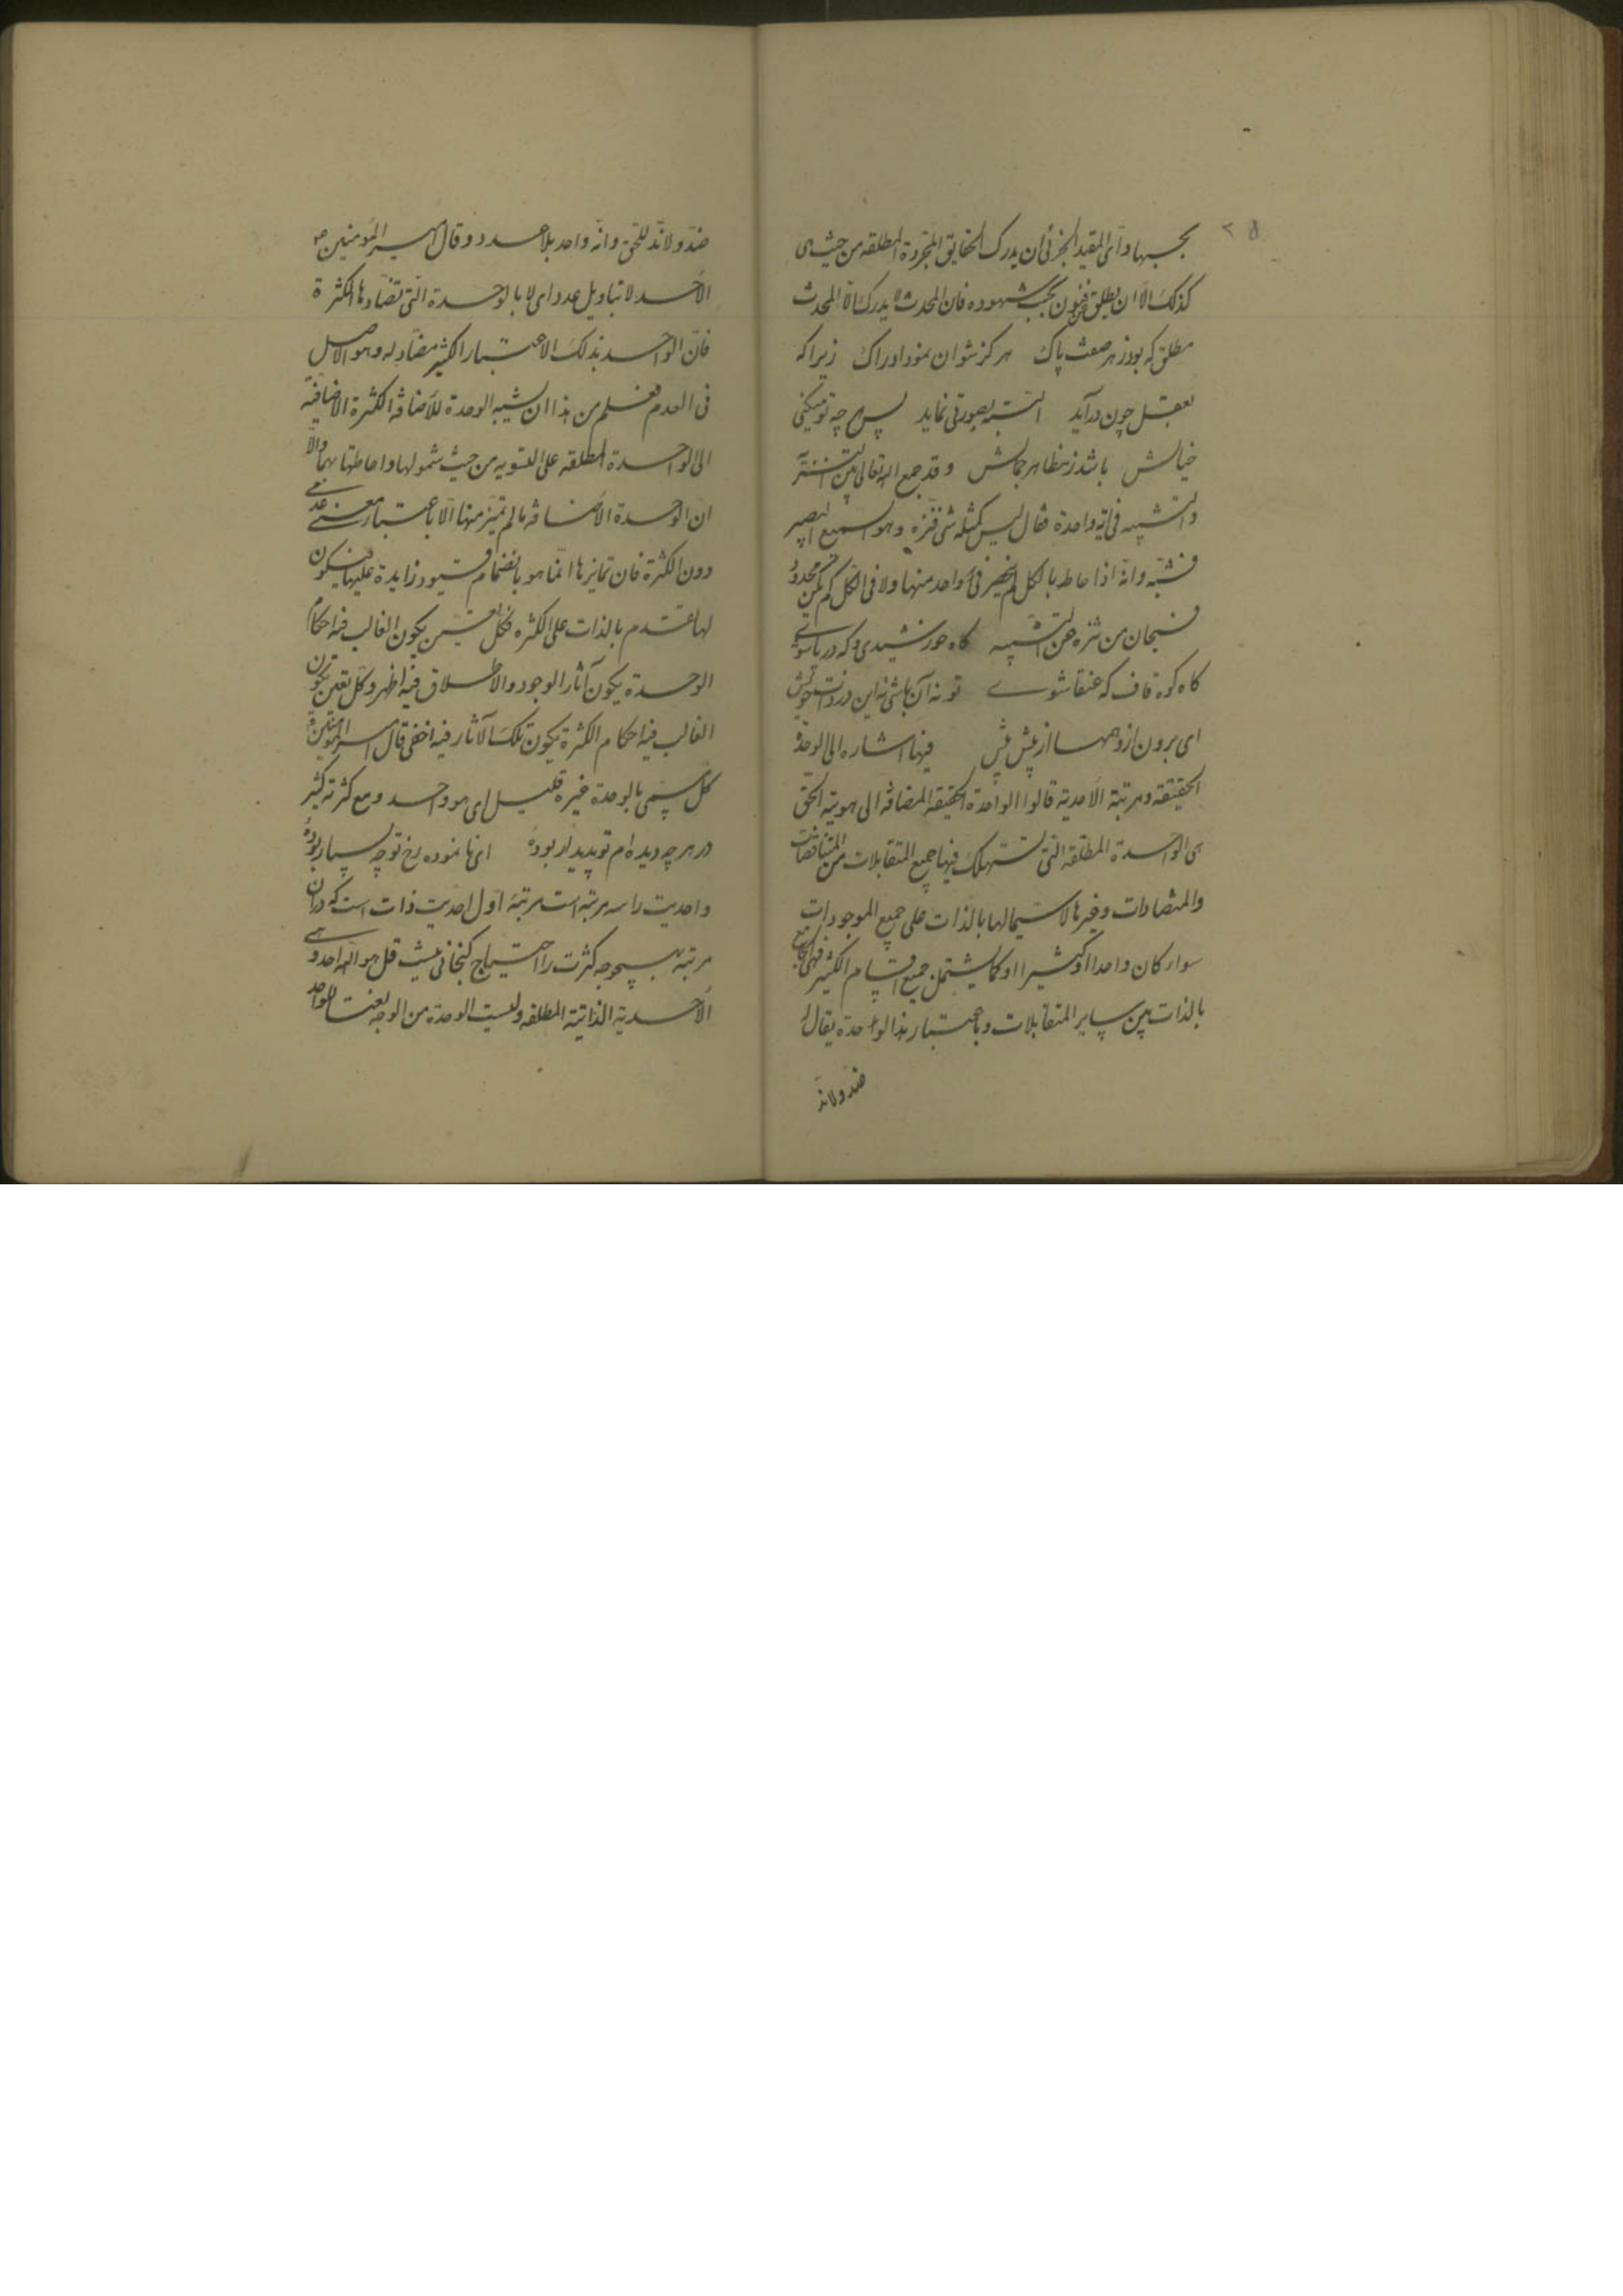 ٢٥
بحسبها وانّی المقید الجزئی ان یدرک الحقایق المجردة المطلقه من حیث هی
کذلک الا ان یطلق عن کون بحسب شهوده فان المحدث لا یدرک الا المحدث
مطلق که بود ز هر صفت پاک هرکز نتوان نمود ادراک زیرا که
بعقل چون درآید البته بصورتی نماید پس هر چه تو میکنی
خیالش باشد ز مظاهر جمالش وقد جمع الله تعالی بین التنزیه
والتشبیه فی آیة واحدة فقال لیس کمثله شی فنزه وهو السمیع البصیر
فشبه وانه اذا حاط بالکل لم ینحصر فی واحد منها ولا فی الکل لم یکن محدود
فسبحان من تنزه عن التشبیه کاه خورشیدی و که دریا شوی
کاه کوه قاف که عنقا شوی تو نه آن باشی نه این در ذات خویش
ای برون از وهمها از پیش پیش فیها اشاره الی الوحدة
الحقیقة ومرتبة الاحدیة قالوا الواحدة الحقیقه المضافه الی هویة الحق
هی الواحدة المطلقه التی تستهلک فیها جمیع المتقابلات من المتناقضات
والمتضادات وغیرها لاشتمالها بالذات علی جمیع الموجودات
سواء کان واحدا او کثیرا او کما یشتمل جمیع اقسام الکثیر فهی الجامع
بالذات بین سایر المتقابلات وباعتبار هذا الواحدة یقال لا
ضد ولا ند
ضد ولا ند للحق وانه واحد بلا عدد وقال امیر المؤمنین ع
الاحد لا بتاویل عدد ای لا بالوحدة التی تضادها الکثرة
فان الواحد بذلک الاعتبار الکثیر مضاد له وهو الاصل
فی العدم فعلم من هذا ان نسبه الوحدة للاضافه الکثرة الاضافیة
الی الواحدة المطلقه علی التسویه من حیث شمولها واحاطتها بهما والا
ان الوحدة الاضافه ما لم تتمیز منها الا باعتبار معنی عدمی
دون الکثرة فان تمایزها انما هو بانضمام قیود زایدة علیها فیکون
لها تقدم بالذات علی الکثره فکل تعین یکون الغالب فیه احکام
الوحدة یکون آثار الوجود والاطلاق فیه اظهر وکل تعین یکون
الغالب فیه احکام الکثرة یکون تلک الآثار فیه اخفی قال امیر المؤمنین ع
کل مسمی بالوحدة غیره قلیل ای هو واحد ومع کثرته کثیر
در هر چه دیده ام تو پدیدار بودهٔ ای نا نموده رخ تو چه بسیار بودهٔ
واحدیت را سه مرتبه است مرتبهٔ اول احدیت ذات است که در آن
مرتبه بهیچوجه کثرت را احتیاج کنجائی نیست قل هو الله احد وهی
الاحدیة الذاتیة المطلقه ولیست الوحدة من الوجه نعت للواحد